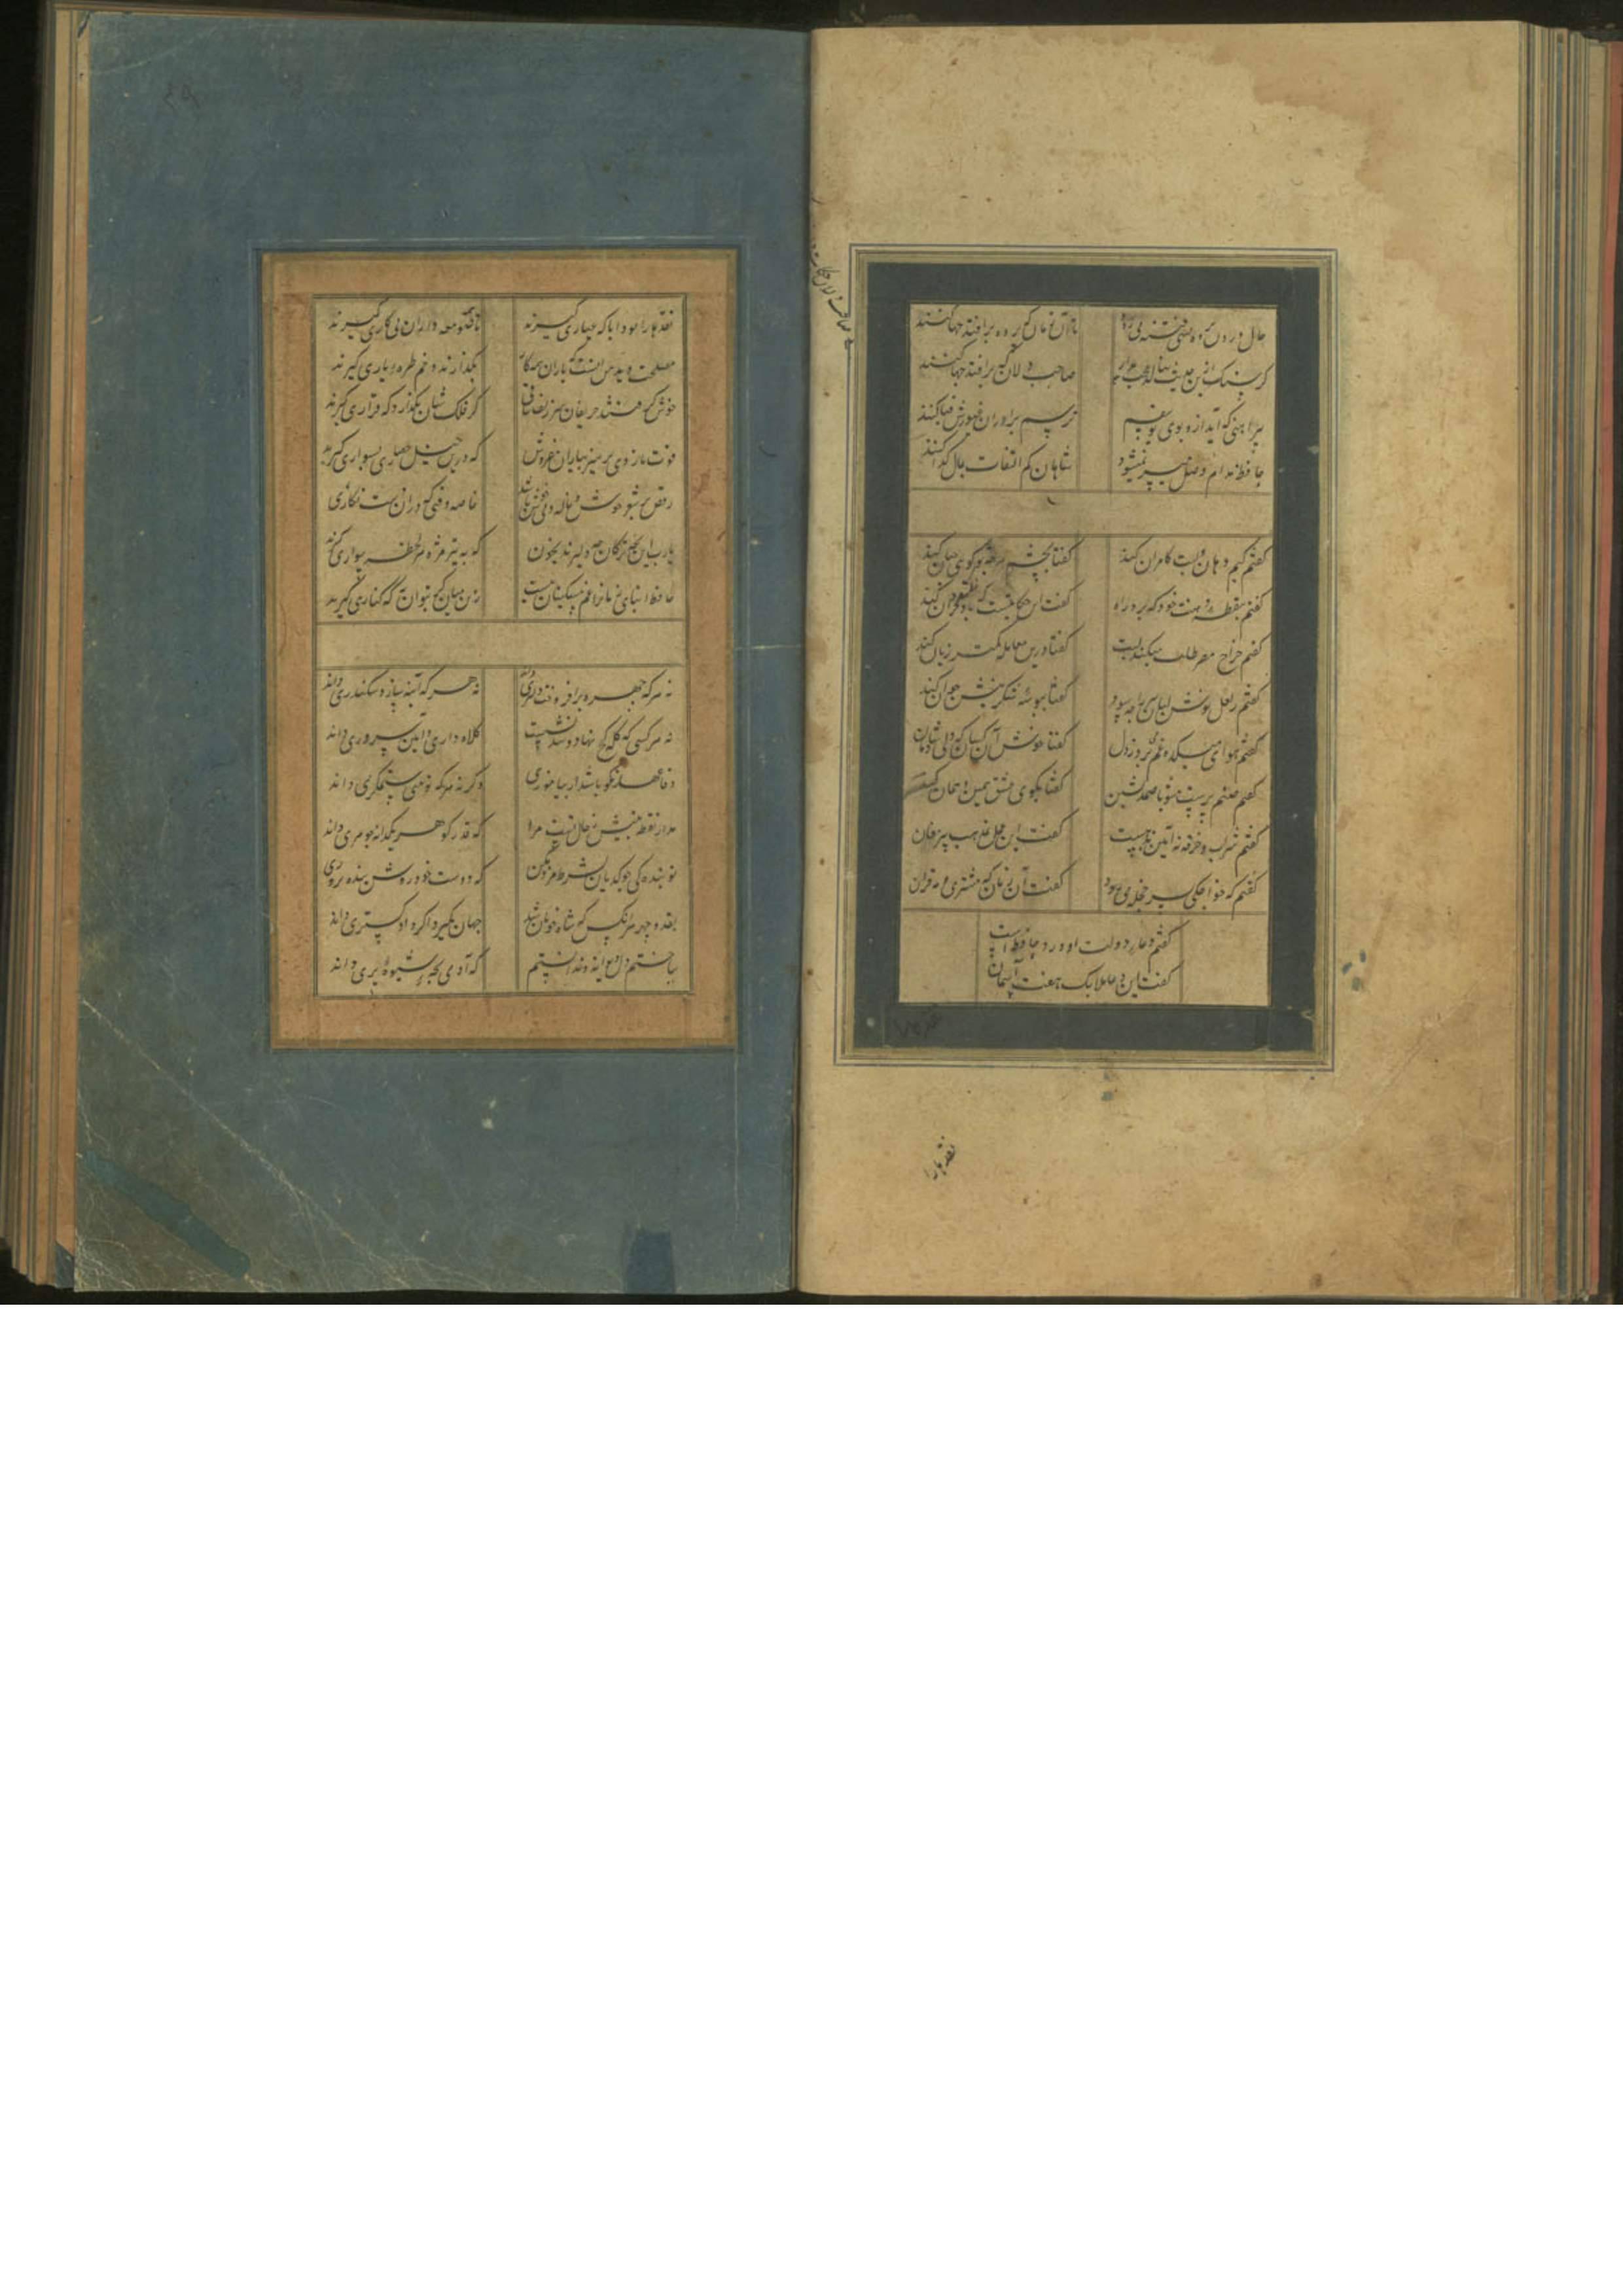 حالی درون پرده بسی فتنه می رود تا آن زمان که پرده برافتد چها کنند
گر سنگ ازین حدیث بنالد عجب مدار صاحب دلان که برافتد چها کنند
پیراهنی که آید ازو بوی یوسفم ترسم برادران غیورش قبا کنند
حافظ مدام وصل میسر نمیشود شاهان کم التفات بحال گدا کنند
گفتم کیم دهان و لبت کامران کنند گفتا بچشم هرچه تو گوی چنان کنند
گفتم بنقطه دهنت خود که برد راه گفت این حکایتیست که کنند
گفتم خراج مصر طلب میکند لبت گفتا درین معامله کمتر زیان کنند
گفتم ز لعل نوش لبان پیر را چه سود گفتا ببوسه شکرینش جوان کنند
گفتم هوای میکده غم می برد ز دل گفتا خوش آن کسان که دلی شادمان
گفتم صنم پرست مشو با صمد نشین گفتا بکوی عشق همین و همان کنند
گفتم شراب و خرقه نه آیین مذهبست گفت این عمل بمذهب پیر مغان
گفتم که خواجه کی بسر حجله می رود گفت آن زمان که مشتری و مه قران
گفتم دعای دولت او ورد حافظ است
گفت این دعا ملایک هفت آسمان
نقدها را
نقدها را بود آیا که عیاری گیرند تا همه صومعه داران پی کاری گیرند
مصلحت دید من آنست که یاران همه کار بگذارند و خم طره یاری گیرند
خوش گرفتند حریفان سر زلف ساقی گر فلک شان بگذارد که قراری گیرند
قوت بازوی پرهیز بیاران مفروش که درین خیل حصاری بسواری گیرند
رقص بر شعر خوش و ناله نی خوش باشد خاصه وقتی که در آن دست نگاری
یا رب این بچه ترکان چه دلیرند بخون که به تیر مژه هر لحظه سواری گیرند
حافظ ابنای زمان را غم مسکینان نیست زین میان گر بتوان به که کناری گیرند
نه هر که چهره برافروخت دلبری داند نه هر که آینه سازد سکندری داند
نه هر کسی که کله کج نهاد و تند نشست کلاه داری و آیین سروری داند
وفا و عهد نکو باشد ار بیاموزی وگرنه هر که تو بینی ستمگری داند
مدار نقطه بینش ز خال تست مرا که قدر گوهر یکدانه جوهری داند
تو بندگی چو گدایان بشرط مزد مکن که دوست خود روش بنده پروری
بقد و چهره هر آنکس که شاه خوبان شد جهان بگیرد اگر دادگستری داند
بباختم دل دیوانه و ندانستم که آدمی بچه شیوه پری داند